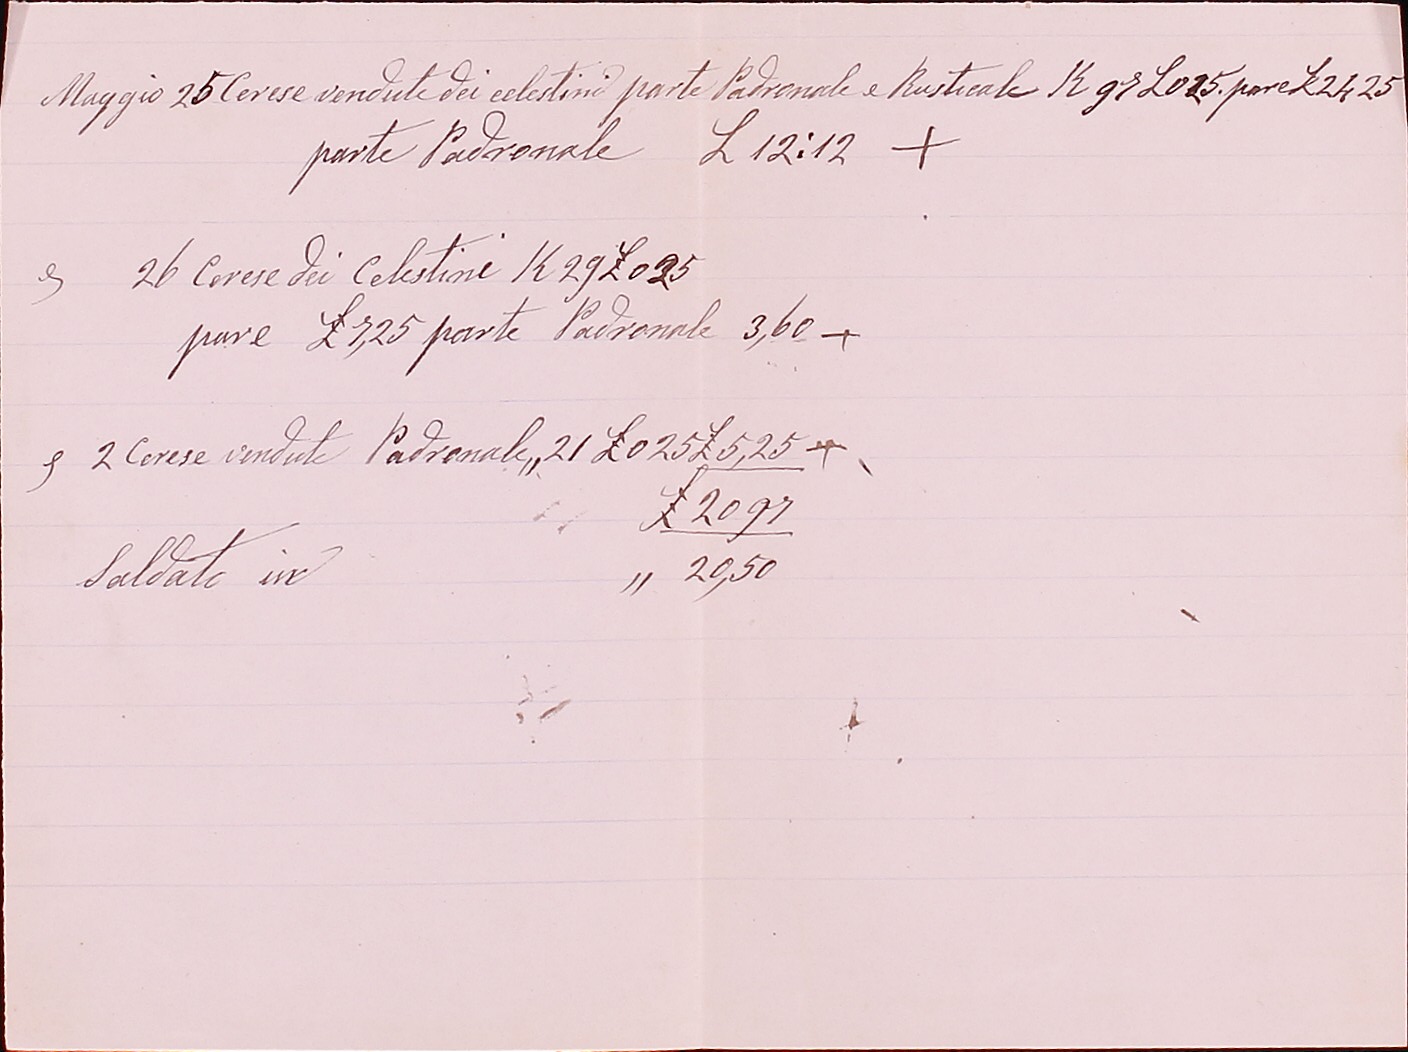 Maggio 25 Cerese vendute dei celestini parte Padronale e Rusticale K 97 L 025. pare L 24 25
parte Padronale L 12:12 +
e 26 Cerese dei Celestini K 29 L 025
pare L 7,25 parte Padronale 3,60 +
e 2 Cerese vendute Padronale „ 21 L 025 L 5,25 +
L 20 97
Saldato in „ 20,50